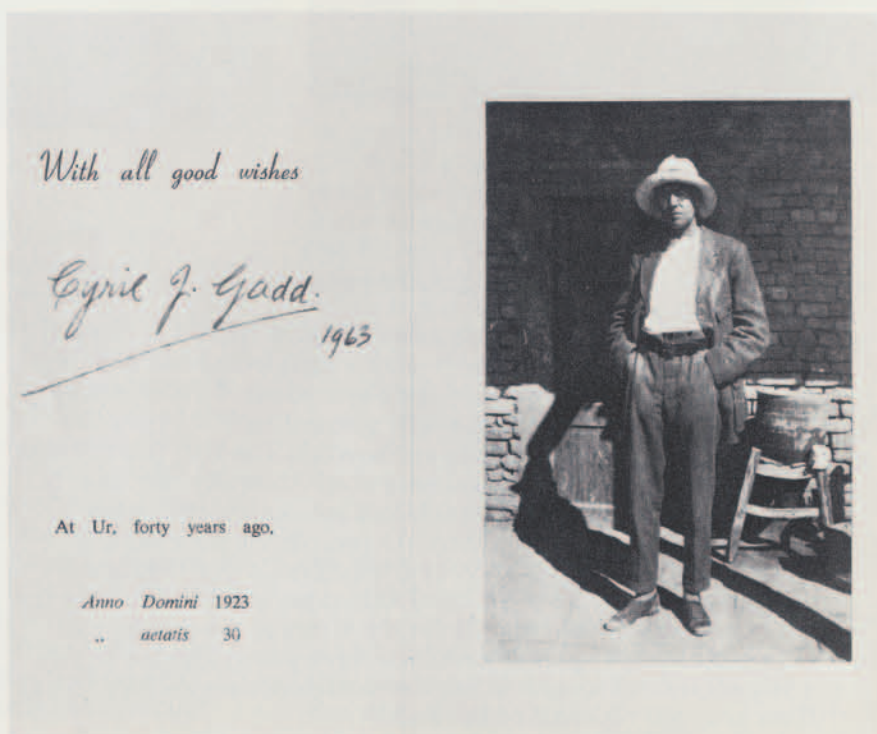 With all good wishes
Cyril J. Gadd.
1963
At Ur, forty years ago,
Anno Domini 1923
„ aetatis 30